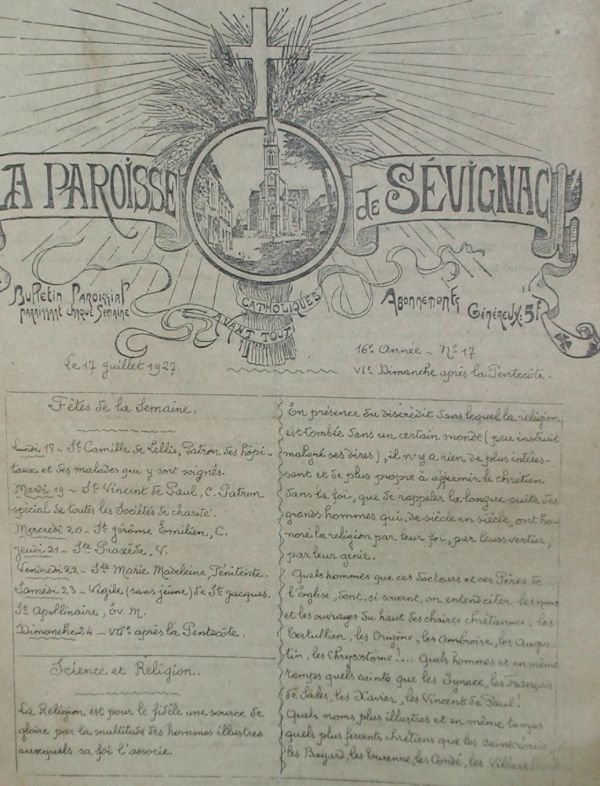 LA PAROISSE de SÉVIGNAC
CATHOLIQUES
AVANT TOUT
Bulletin Paroissial
paraissant chaque semaine
Abonnements
Généreux: 5f
16e Année - No 17
Le 17 Juillet 1927.
VIe Dimanche après la Pentecôte.
Fêtes de la Semaine.
Lundi 18 - St Camille de Lellis, Patron des hôpi-
taux et des malades qui y sont soignés.
Mardi 19 - St Vincent de Paul, C. Patron
spécial de toutes les Sociétés de charité.
Mercredi 20 - St Jérôme Emilien, C.
Jeudi 21 - Ste Praxède, V.
Vendredi 22 - Ste Marie Madeleine, Pénitente.
Samedi 23 - Vigile (sans jeûne) de St Jacques.
St Apollinaire, Ev. M.
Dimanche 24 - VIIe après la Pentecôte.
Science et Religion.
La Religion est pour le fidèle une source de
gloire par la multitude des hommes illustres
auxquels sa foi l'associe.
En présence du discrédit dans lequel la religion
est tombée dans un certain monde (peu instruit
malgré ses dires), il n'y a rien de plus intéres-
sant et de plus propre à affermir le chrétien
dans la foi, que de rappeler la longue suite des
grands hommes qui, de siècle en siècle, ont ho-
noré la religion par leur foi, par leurs vertus,
par leur génie.
Quels hommes que ces docteurs et ces Pères de
l'Église, dont, si souvent, on entend citer les noms
et les ouvrages du haut des chaires chrétiennes: les
Tertullien, les Origène, les Ambroise, les Augus-
tin, les Chrysostome!... Quels hommes et en même
temps quels saints que les Ignace, les François
de Sales, les Xavier, les Vincent de Paul!
Quels noms plus illustres et en même temps
quels plus fervents chrétiens que les saint Louis
les Bayard, les Turenne, les Condé, les Villars